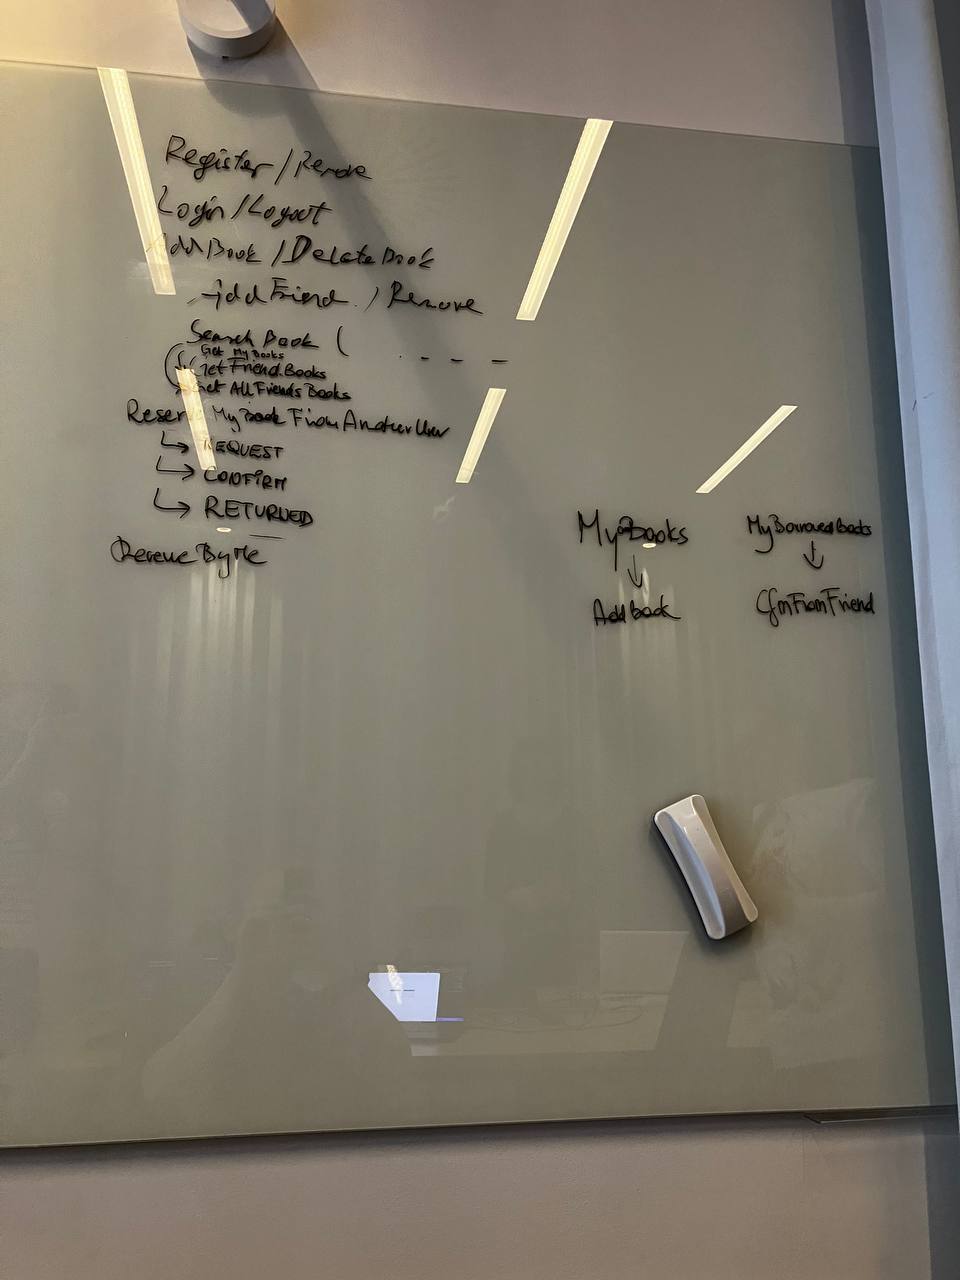 Register / Remove
Login / Logout
Add Book / Delete Book
Add Friend / Remove
Search Book ( - - -
Get My Books
Get Friend Books
Get All Friends Books
Reserve My Book From Another User
↳ REQUEST
↳ CONFIRM
↳ RETURNED
By Me
My Books
↓
Add Book
My Borrowed Books
↓
From Friend